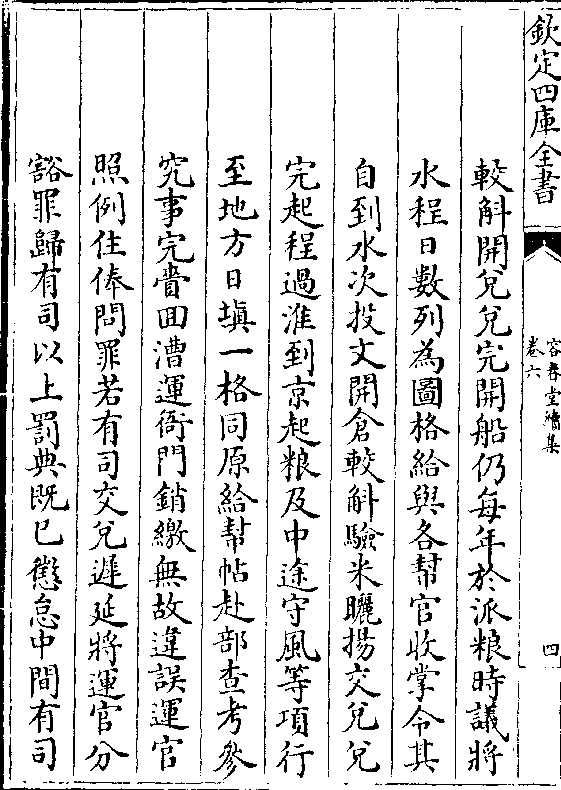 欽定四庫全書
容春堂續集
卷六
四
較斛開兌兌完開船仍每年於派粮時議將
水程日數列為圖格給與各幫官收掌令其
自到水次投文開倉較斛驗米曬揚交兌兌
完起程過淮到京起粮及中途守風等項行
至地方日填一格同原給幫帖赴部查考參
究事完賫回漕運衙門銷繳無故違誤運官
照例住俸問罪若有司交兌遲延將運官分
豁罪歸有司以上罰典既已懲怠中間有司